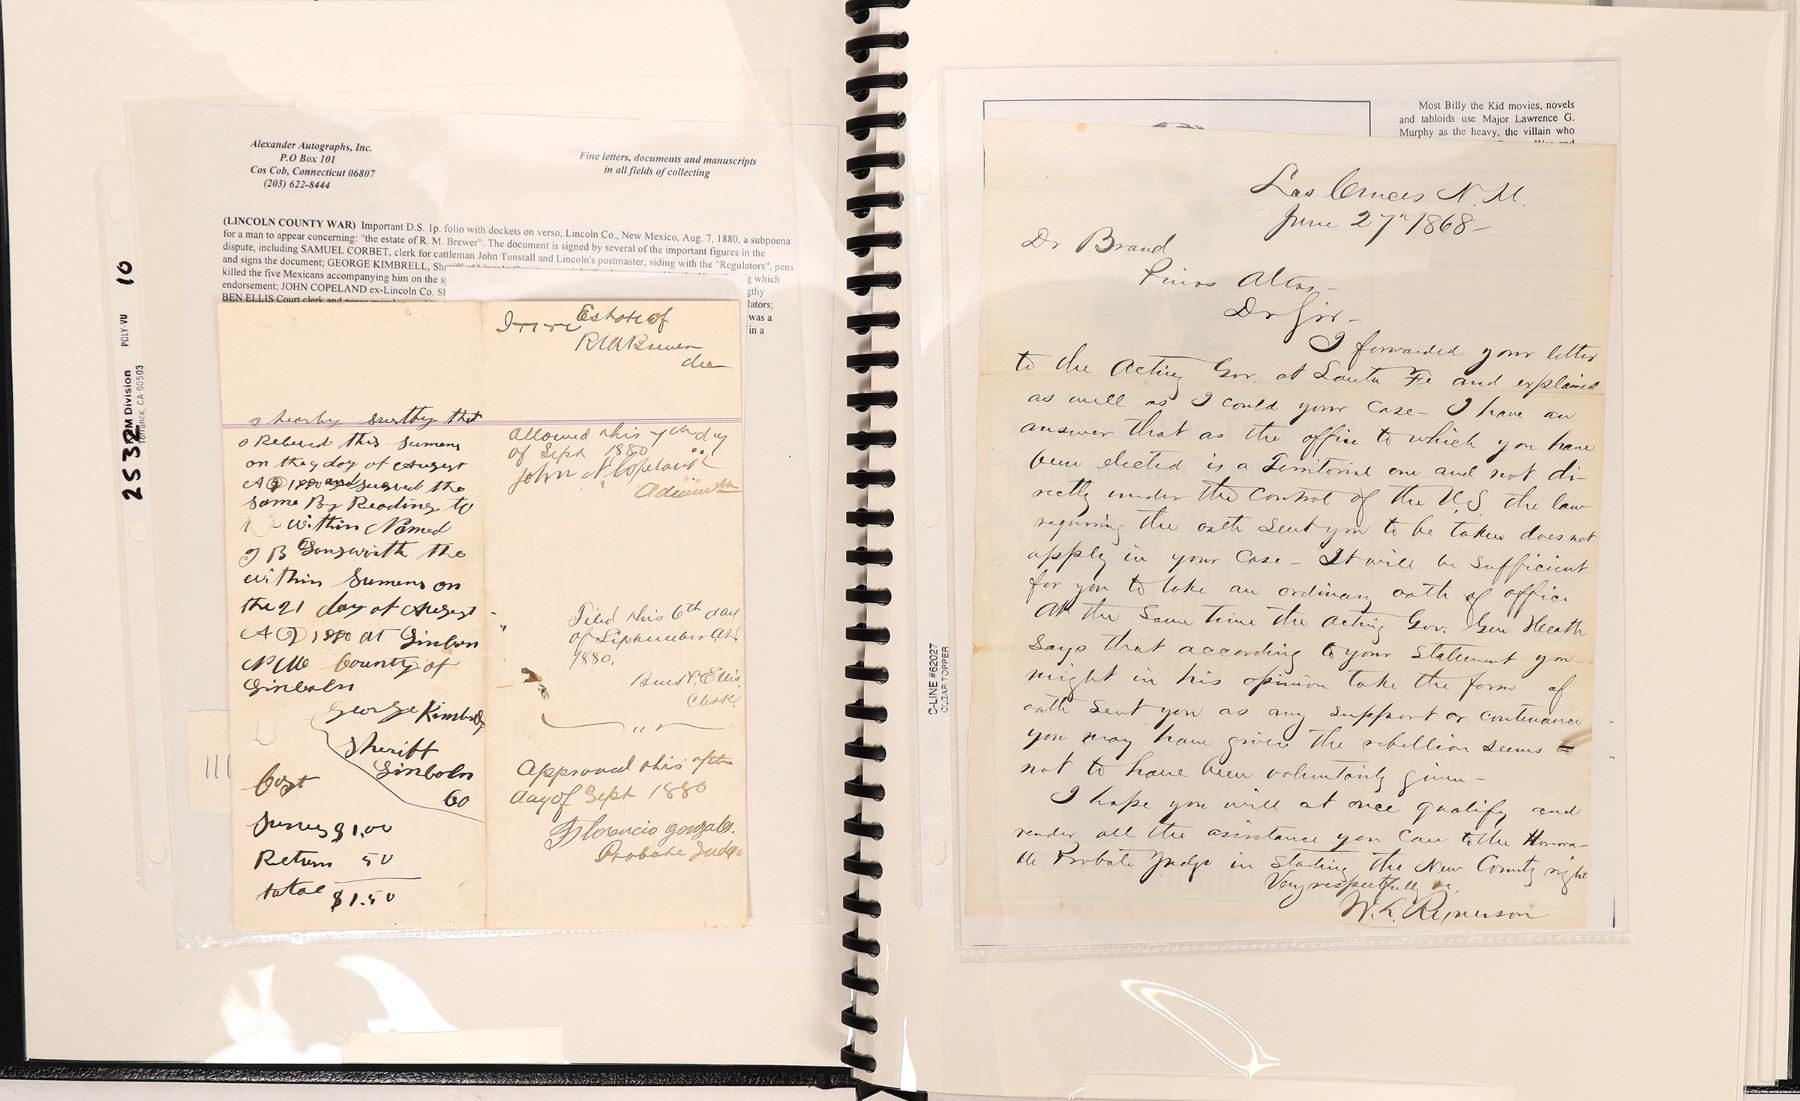 Alexander Autographs, Inc.
P.O Box 101
Cos Cob, Connecticut 06807
(203) 622-8444
Fine letters, documents and manuscripts
in all fields of collecting
(LINCOLN COUNTY WAR) Important D.S. 1p. folio with dockets on verso, Lincoln Co., New Mexico, Aug. 7, 1880, a subpoena
for a man to appear concerning: "the estate of R. M. Brewer". The document is signed by several of the important figures in the
dispute, including SAMUEL CORBET, clerk for cattleman John Tunstall and Lincoln's postmaster, siding with the "Regulators", pens
and signs the document; GEORGE KIMBRELL,
killed the five Mexicans accompanying him on the
endorsement; JOHN COPELAND ex-Lincoln Co.
BEN ELLIS Court clerk and
g which
gthy
lators;
was a
in a
25532 10
POLY-VU
Division
Torrance, CA 90503
Estate of
R M Brewer
dec
hearby Serthy that
Receved this Sumens
on the 9 day of August
A D 1880 and served the
Same By Reading to
within Named
J B the
within Sumens on
the 21 day of August
A D 1880 at Linboln
N M County of
Linboln
George Kimbrell
Sheriff
Linboln
Co
Cost
Serves $1,00
Return 50
total $1.50
allowed this 7th day
of Sept 1880
John N Copeland
Filed this 6th day
of September AD
1880.
Ben H. Ellis
Clerk.
Approved this 7th
day of Sept 1880
Florencio Gonzales.
Probate Judge
C-LINE #62027
CLEAR TOPPER
Most Billy the Kid movies, novels
and tabloids use Major Lawrence G.
Murphy as the heavy, the villain who
War and
Las Cruces N. M.
June 27" 1868-
Dr Brand
Pinos Altos-
Dr Sir-
I forwarded your letter
to the Acting Gov. at Santa Fe and explained
as well as I could your case- I have an
answer that as the office to which you have
been elected is a Territorial one and not di-
rectly under the control of the U.S. the law
requiring the oath sent you to be taken does not
apply in your case- It will be sufficient
for you to take an ordinary oath of office
At the same time the acting Gov. Gen Heath
says that according to your statement you
might in his opinion take the form of
oath sent you as any support or continuance
you may have given the rebellion seems
not to have been voluntarily given-
I hope you will at once qualify and
render all the assistance you can to the Honora-
ble Probate Judge in starting the New County right
Very respectfully
W. L. Rynerson